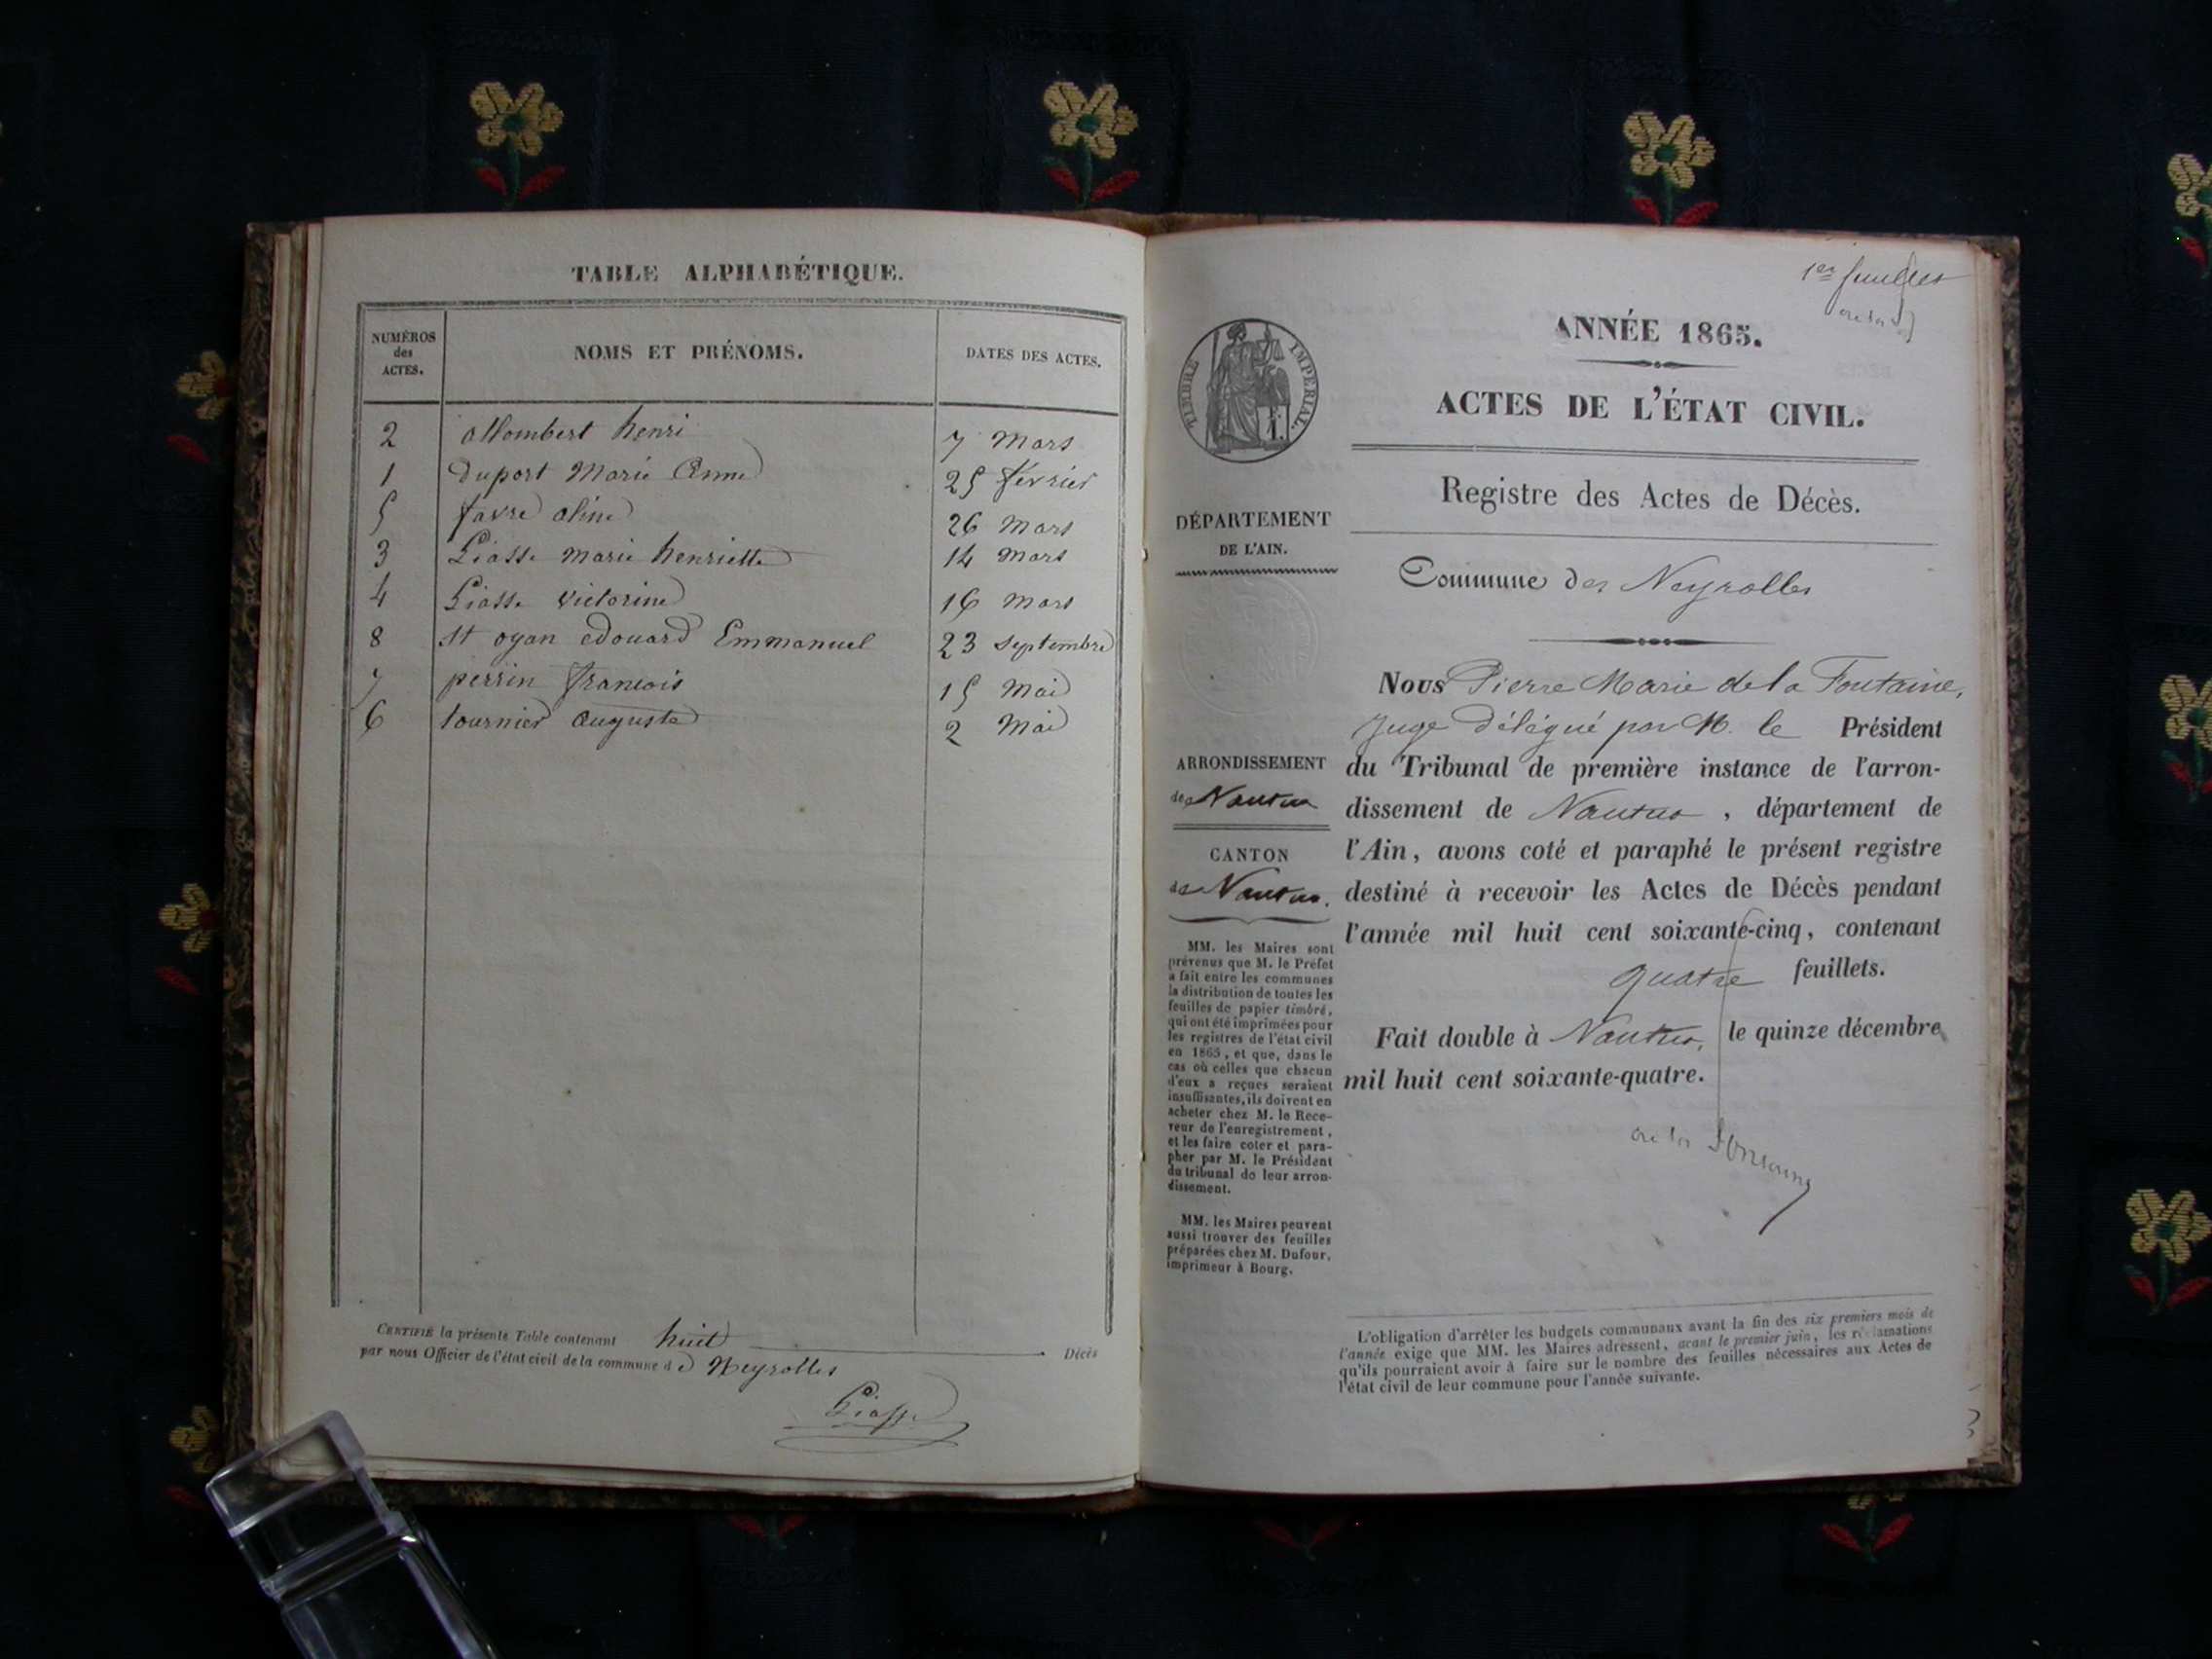 TABLE ALPHABÉTIQUE.
NUMÉROS des ACTES. NOMS ET PRÉNOMS. DATES DES ACTES.
2 Allombert henri 7 Mars
1 Duport Marie Anne 25 février
5 favre aline 26 Mars
3 Liasse Marie henriette 14 Mars
4 Liasse Victorine 16 Mars
8 st oyan edouard Emmanuel 23 Septembre
7 perrin francois 15 Mai
6 tournier auguste 2 Mai
CERTIFIÉ la présente Table contenant huit Décès
par nous Officier de l'état civil de la commune de Neyrolles
Liasse
1er feuillet
ANNÉE 1865.
TIMBRE IMPÉRIAL.
ACTES DE L'ÉTAT CIVIL.
Registre des Actes de Décès.
DÉPARTEMENT
DE L'AIN.
Commune des Neyrolles
ARRONDISSEMENT
de Nantua
CANTON
de Nantua.
MM. les Maires sont
prévenus que M. le Préfet
a fait entre les communes
la distribution de toutes les
feuilles de papier timbré,
qui ont été imprimées pour
les registres de l'état civil
en 1865, et que, dans le
cas où celles que chacun
d'eux a reçues seraient
insuffisantes, ils doivent en
acheter chez M. le Rece-
veur de l'enregistrement,
et les faire coter et para-
pher par M. le Président
du tribunal de leur arron-
dissement.
MM. les Maires peuvent
aussi trouver des feuilles
préparées chez M. Dufour,
imprimeur à Bourg.
Nous Pierre Marie de la Fontaine,
Juge délégué par M. le Président
du Tribunal de première instance de l'arron-
dissement de Nantua, département de
l'Ain, avons coté et paraphé le présent registre
destiné à recevoir les Actes de Décès pendant
l'année mil huit cent soixante-cinq, contenant
quatre feuillets.
Fait double à Nantua, le quinze décembre
mil huit cent soixante-quatre.
de la Fontaine
L'obligation d'arrêter les budgets communaux avant la fin des six premiers mois de
l'année exige que MM. les Maires adressent, avant le premier juin, les réclamations
qu'ils pourraient avoir à faire sur le nombre des feuilles nécessaires aux Actes de
l'état civil de leur commune pour l'année suivante.